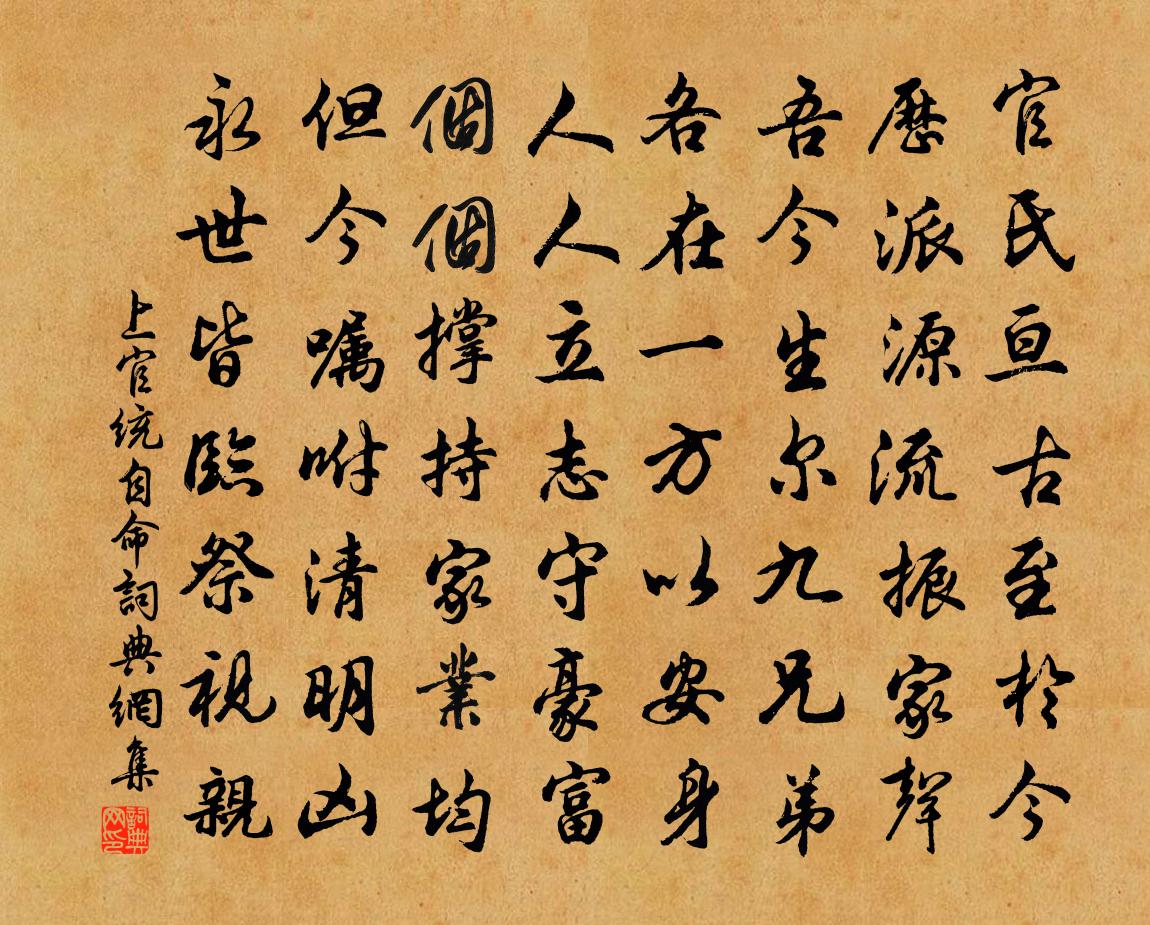 官氏亘古至於今
歷派源流振家聲
吾今生尔九兄弟
各在一方以安身
人人立志守豪富
個個撐持家業均
但今嘱咐清明凶
永世皆臨祭祝親
上官統自命詞典網集
詞典网印